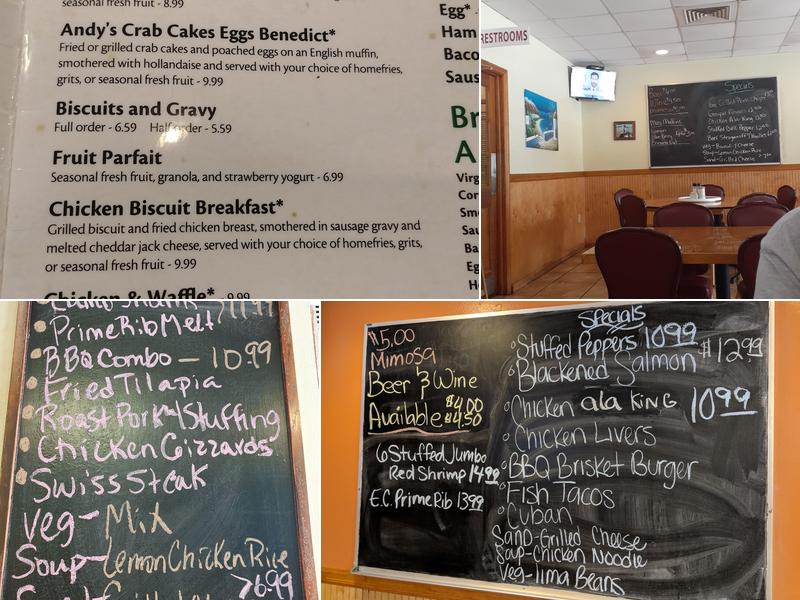 seasonal fresh fruit - 8.99
Andy's Crab Cakes Eggs Benedict*
Fried or grilled crab cakes and poached eggs on an English muffin,
smothered with hollandaise and served with your choice of homefries,
grits, or seasonal fresh fruit - 9.99
Biscuits and Gravy
Full order - 6.59 Half order - 5.59
Fruit Parfait
Seasonal fresh fruit, granola, and strawberry yogurt - 6.99
Chicken Biscuit Breakfast*
Grilled biscuit and fried chicken breast, smothered in sausage gravy and
melted cheddar jack cheese, served with your choice of homefries, grits,
or seasonal fresh fruit - 9.99
Chicken & Waffle* - 9.99
Egg*
Ham
Baco
Saus
Br
A
Virg
Cor
Smo
Sau
Ba
Eg
RESTROOMS
Specials
Chicken Ala King
Stuffed Bell Pepper
Veg-Broccoli & Cheese
Soup-Lemon Chicken Rice
Sand-Grilled Cheese
Prime Rib Melt
BBQ Combo - 10.99
Fried Tilapia
Roast Pork & Stuffing
Chicken Gizzards
Swiss Steak
Veg- Mix
Soup- Lemon Chicken Rice
>6.99
$5.00
Mimosa
Beer & Wine
Available $4.00
$4.50
6 Stuffed Jumbo
Red Shrimp 14.99
E.C. Prime Rib 13.99
Specials
Stuffed Peppers 10.99
Blackened Salmon $12.99
Chicken ala King 10.99
Chicken Livers
BBQ Brisket Burger
Fish Tacos
Cuban
Sand-Grilled Cheese
Soup-Chicken Noodle
Veg-lima Beans